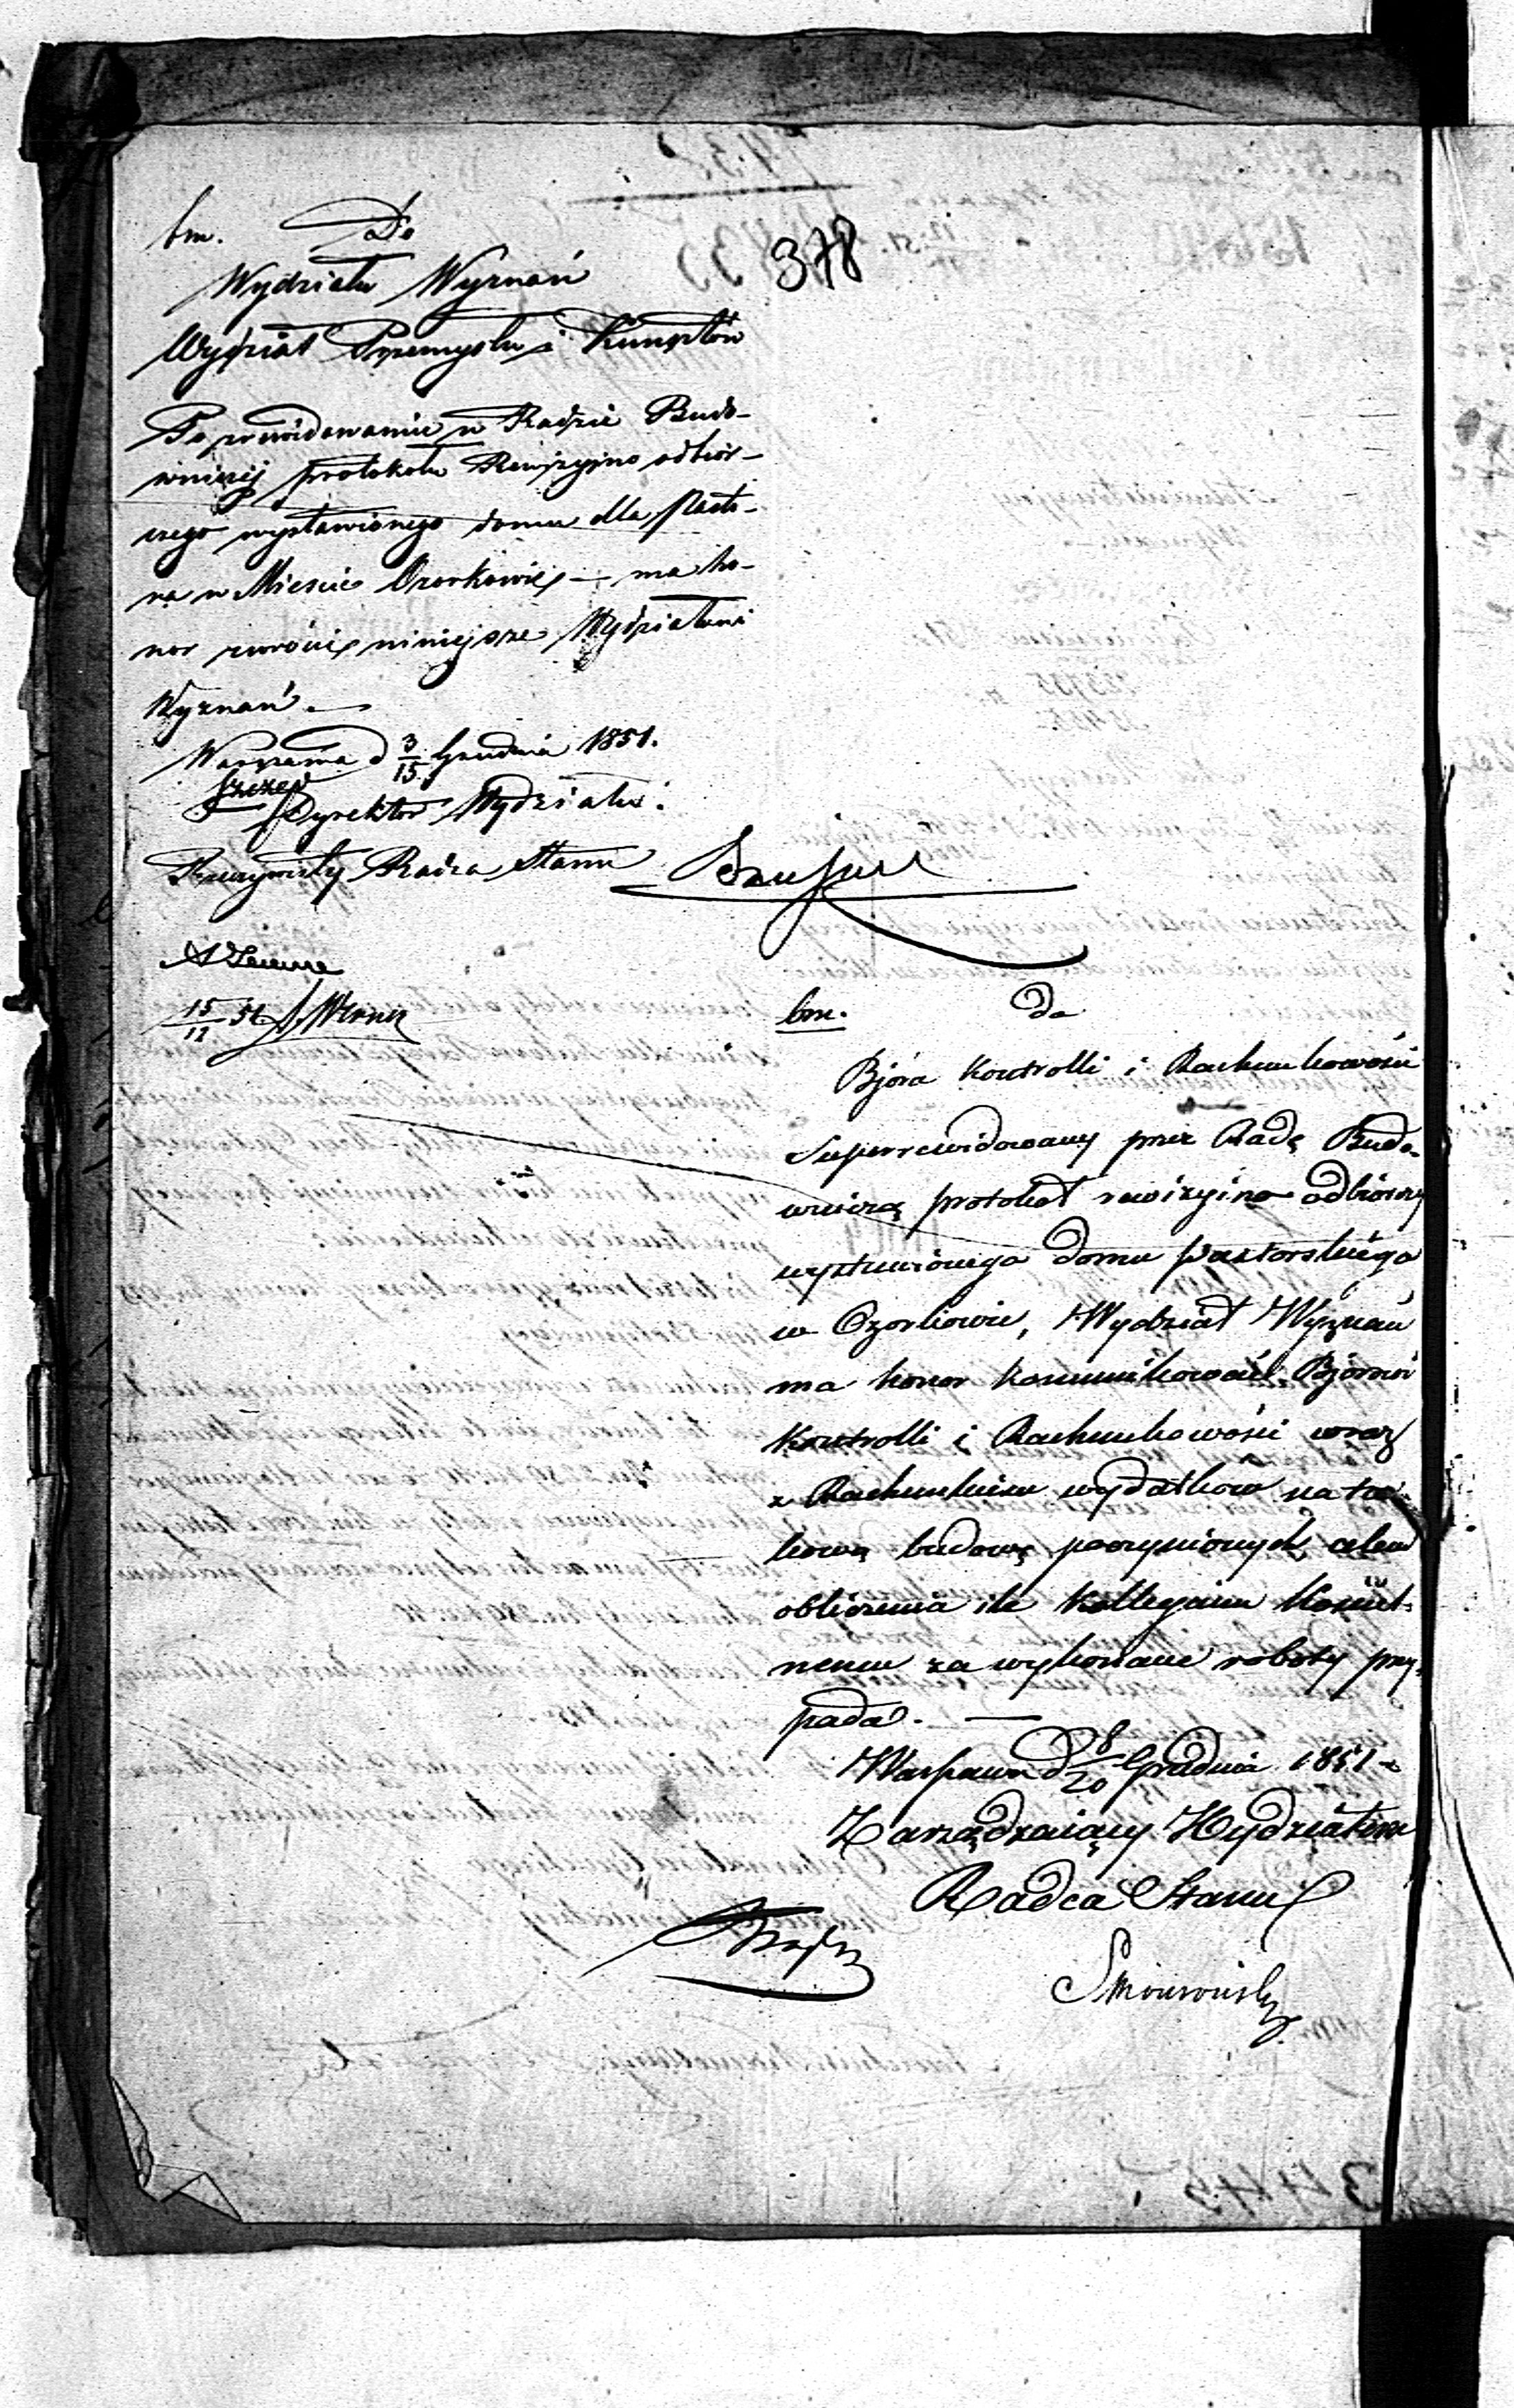 378
bm. Do
Wydziału Wyznań
Wydział Przemysłu i Kunsztów
Po zrewidowaniu w Radzie Budo-
wniczej protokołu Rewizyjno odbior-
czego wystawionego domu dla Pasto-
ra w Mieście Ozorkowie — ma ho-
nor zwrócić niniejsze Wydziałowi
Wyznań. —
Warszawa d 3/15 Grudnia 1851.
Dyrektor Wydziału.
Rzeczywisty Radca Stanu
15/12 51.
bm. do
Bjóra Kontrolli i Rachunkowości
Superrewidowany przez Radę Budo-
wniczą protokoł rewizyino odbiorczy
wystawionego domu pastorskiego
w Ozorkowie, Wydział Wyznań
ma honor komunikować Bjórowi
Kontrolli i Rachunkowości wraz
z Rachunkiem wydatkow na ta-
kową budowę poczynionych, celem
obliczenia ile Kollegium Kościel-
nemu za wykonane roboty przy-
pada. —
Warszawa d 8/20 Grudnia 1851 -
Zarządzaiący Wydziałem
Radca Stanu